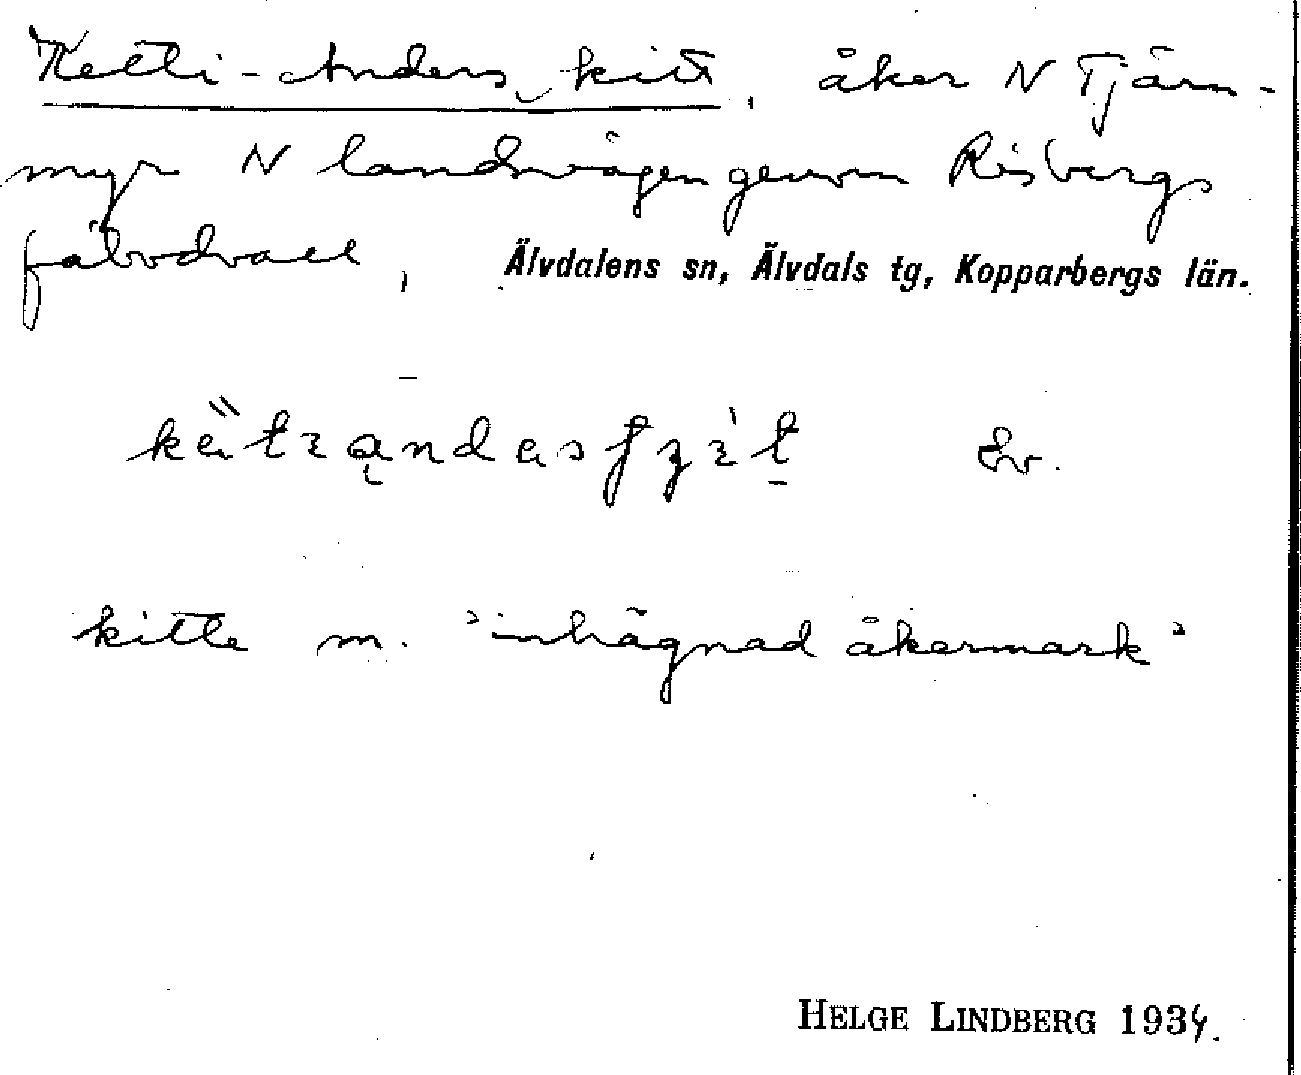 Ketti-Anders_kitt, åker N Tjärn-
myr N landsvägen genom Risbergs
fäbodvall, Älvdalens sn, Älvdals tg, Kopparbergs län.
Ev.
kitte m. "inhägnad åkermark"
HELGE LINDBERG 1934.